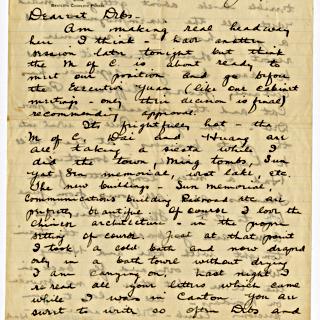 Dearest Dibs-
Am making real headway
here I think I have another
session later tonight but think
the M of C. is about ready to
meet our position and go before
the Executive Yuan (like our cabinet
meetings - only their decision is final)
recommending approval.
Its frightfully hot - the
M of C., Dai and Huang are
all taking a siesta while I
did the town, Ming tombs, Sun
Yat Sen memorial, west lake, etc.
The new buildings - Sun memorial,
Communications building Railroad etc are
perfectly beautiful. Of course I love the
Chinese architecture in the proper
setting of course. Just at that point
I took a cold bath and now draped
only in a bath towel without drying
I am carrying on. Last night I
re read all your letters which came
while I was in Canton. You are
sweet to write so often Dibs and